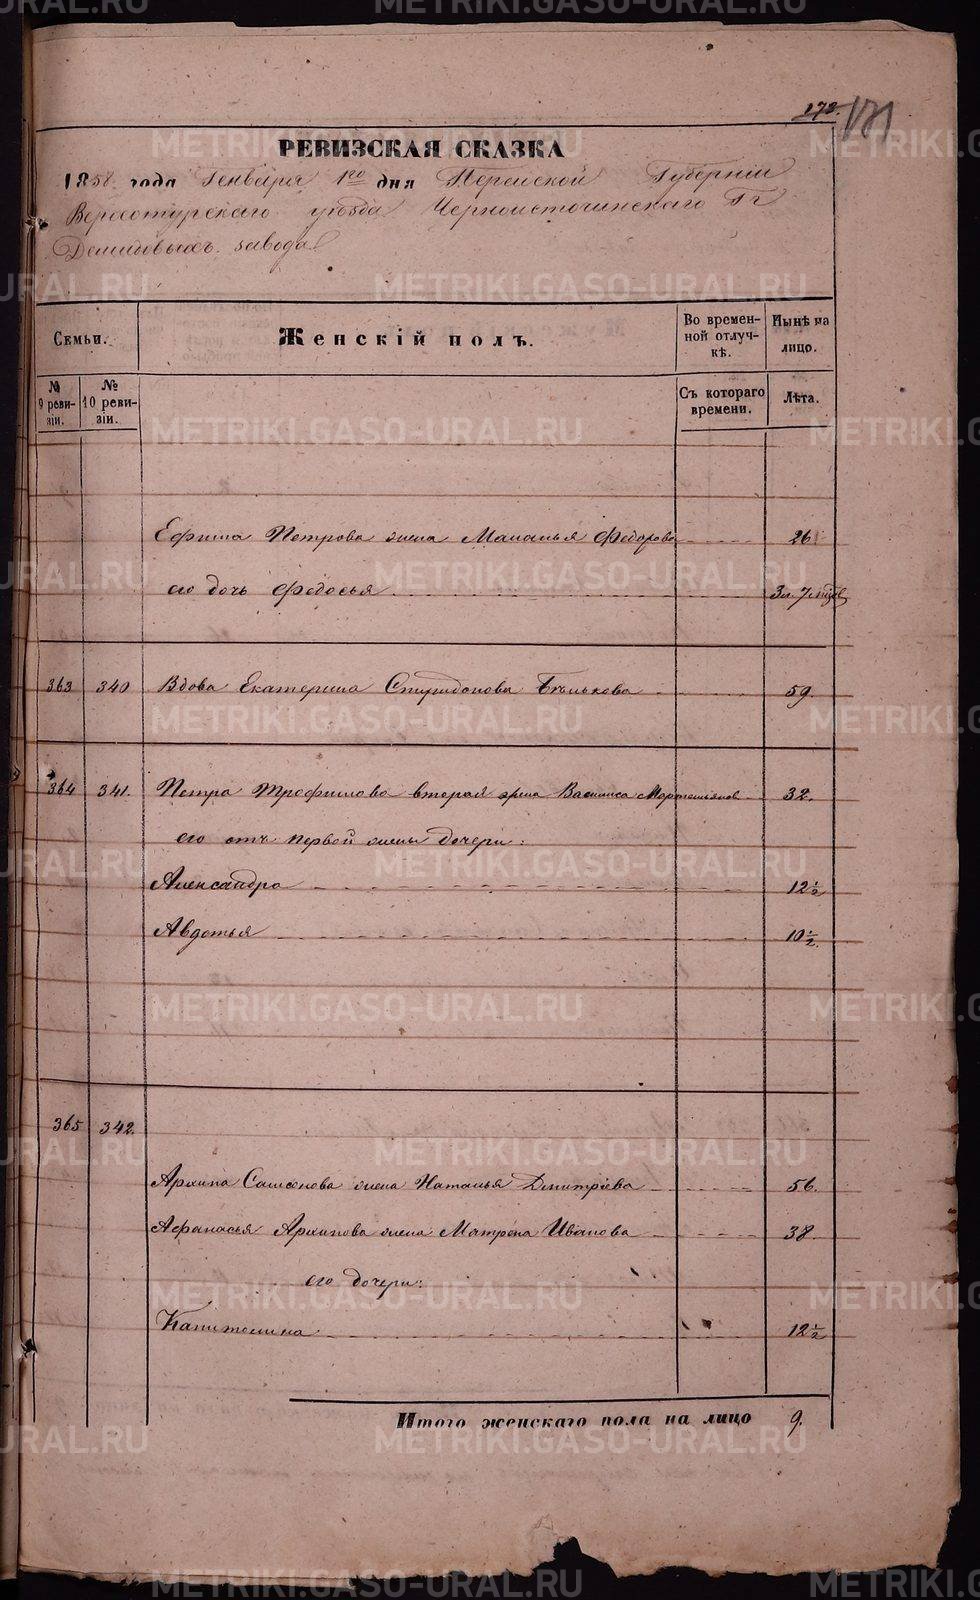 172. 171
РЕВИЗСКАЯ СКАЗКА
1858 года Генваря 1го дня Пермской Губернии
Верхотурскаго уѣзда Черноисточинскаго Гг
Демидовыхъ завода
Семьи.
Женскій полъ.
Во времен-
ной отлуч-
кѣ.
Нынѣ на
лицо.
№
9 реви-
зіи.
№
10 реви-
зіи.
Съ котораго
времени.
Лѣта.
Ефима Петрова жена Маланья Федорова 26
его дочь Федосья 3 л. 7 мцов
363 340 Вдова Екатерина Спиридонова Бѣлькова 59.
364 341. Петра Трофимова вторая жена Василиса Мартемьянов 32.
его отъ первой жены дочери:
Александра 12½
Авдотья 10½.
365 342.
Архипа Самсонова жена Наталья Дмитріева 56.
Афанасья Архипова жена Матрена Иванова 38.
его дочери:
Капитолина 12½
Итого женскаго пола на лицо 9.
METRIKI.GASO-URAL.RU